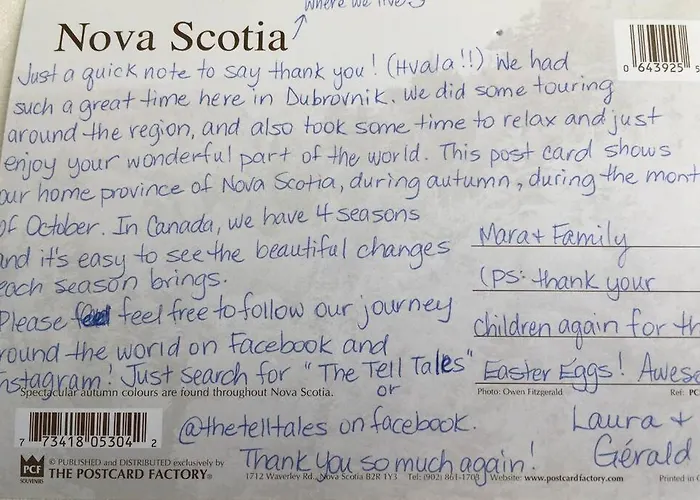 where we live
Nova Scotia
0 643925 5
Just a quick note to say thank you! (Hvala!!) We had
such a great time here in Dubrovnik. We did some touring
around the region, and also took some time to relax and just
enjoy your wonderful part of the world. This post card shows
our home province of Nova Scotia, during autumn, during the mont
of October. In Canada, we have 4 seasons
and it's easy to see the beautiful changes
each season brings.
Please feel free to follow our journey
round the world on Facebook and
nstagram! Just search for "The Tell Tales"
or
@thetelltales on facebook.
Thank you so much again!
Mara + Family
(PS: thank your
children again for th
Easter Eggs! Aweso
Laura +
Gérald
Spectacular autumn colours are found throughout Nova Scotia.
Photo: Owen Fitzgerald
Ref: PC
7 73418 05304 2
PCF
SOUVENIRS
© PUBLISHED and DISTRIBUTED exclusively by
THE POSTCARD FACTORY®
1712 Waverley Rd., Nova Scotia B2R 1Y3 Tel: (902) 861-1703 Website: www.postcardfactory.com
Printed in C